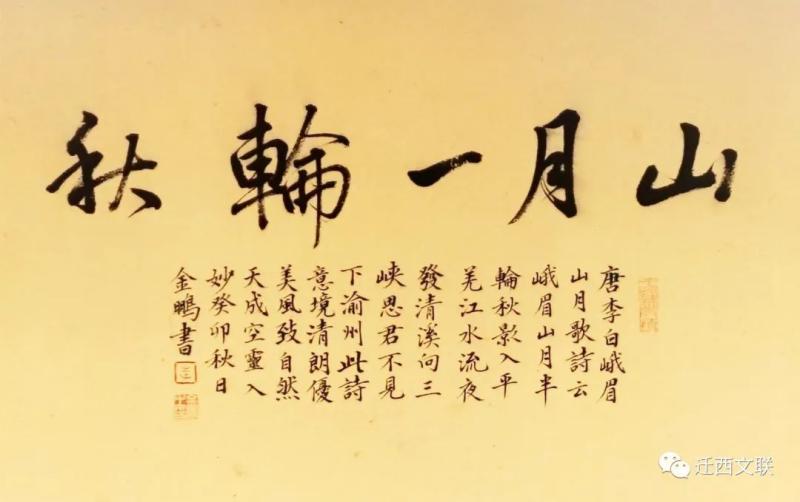 山月一輪秋
唐李白峨眉
山月歌詩云
峨眉山月半
輪秋影入平
羌江水流夜
發清溪向三
峽思君不見
下渝州此詩
意境清朗優
美風致自然
天成空靈入
妙癸卯秋日
金鵬書
迁西文联